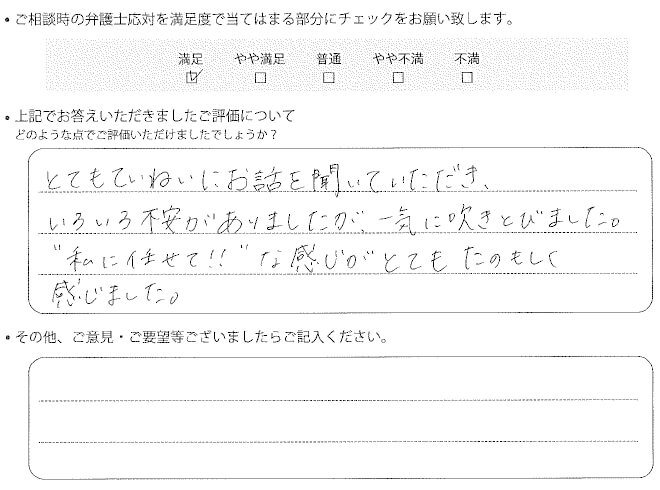 ・ご相談時の弁護士応対を満足度で当てはまる部分にチェックをお願い致します。
満足 やや満足 普通 やや不満 不満
☑ □ □ □ □
・上記でお答えいただきましたご評価について
どのような点でご評価いただけましたでしょうか？
とてもていねいにお話を聞いていただき、
いろいろ不安がありましたが、一気に吹きとびました。
"私に任せて!!"な感じがとてもたのもしく
感じました。
・その他、ご意見・ご要望等ございましたらご記入ください。